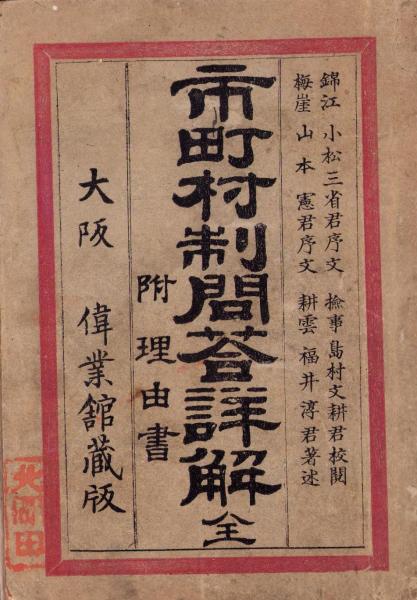 錦江 小松三省君序文 撿事 島村文耕君校閲
梅崖 山本 憲君序文 耕雲 福井淳君著述
市町村制問荅詳解 全
附理由書
大阪 偉業舘蔵版